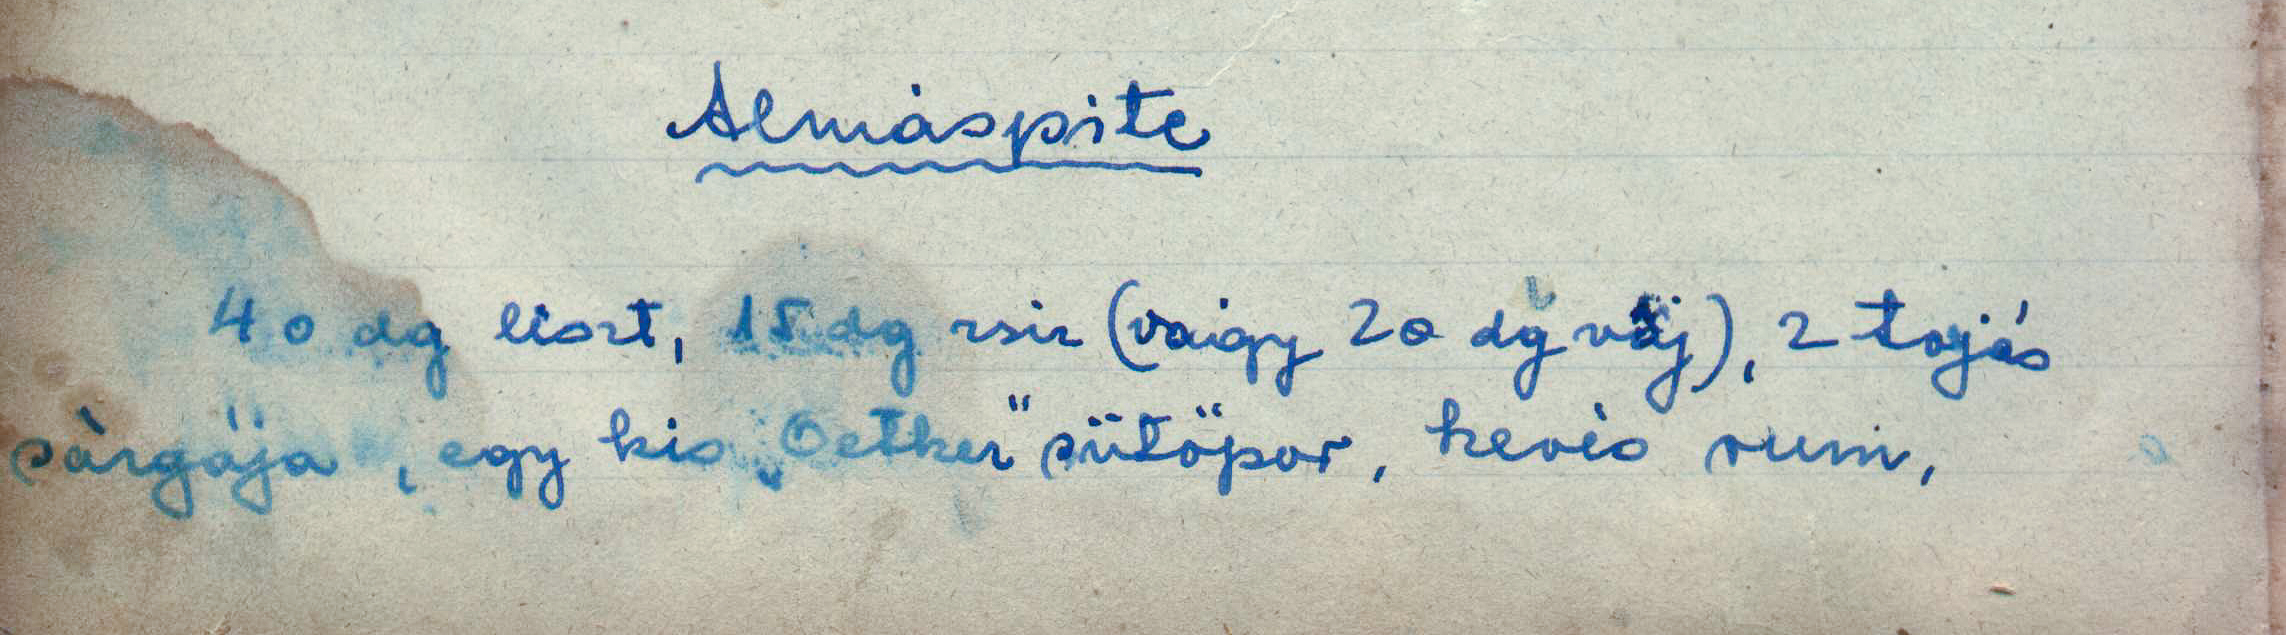 Almáspite
40 dg liszt, 15 dg zsir (vagy 20 dg vaj), 2 tojás
sárgája, egy kis „Oetker" sütőpor, kevés rum,